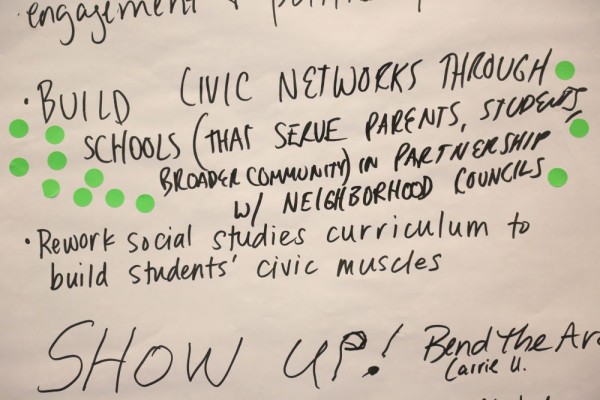 engagement &
• BUILD CIVIC NETWORKS THROUGH
SCHOOLS (THAT SERVE PARENTS, STUDENTS,
BROADER COMMUNITY) IN PARTNERSHIP
W/ NEIGHBORHOOD COUNCILS
• Rework social studies curriculum to
build students' civic muscles
SHOW UP!
Bend the Arc
Carrie U.